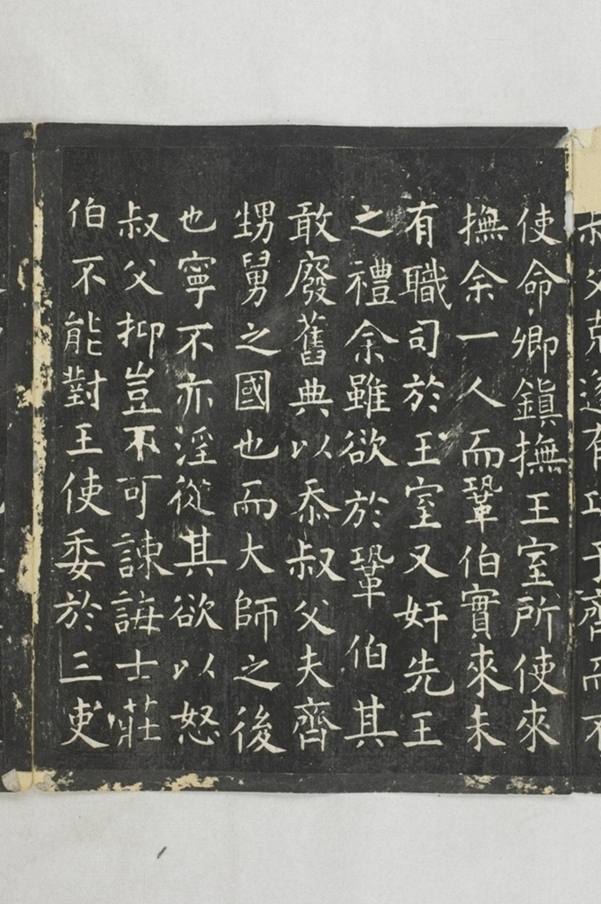 叔父克遂有功于齊而不
使命卿鎮撫王室所使來
撫余一人而鞏伯實來未
有職司於王室又奸先王
之禮余雖欲於鞏伯其
敢廢舊典以忝叔父夫齊
甥舅之國也而大師之後
也寧不亦淫從其欲以怒
叔父抑豈不可諫誨士莊
伯不能對王使委於三吏